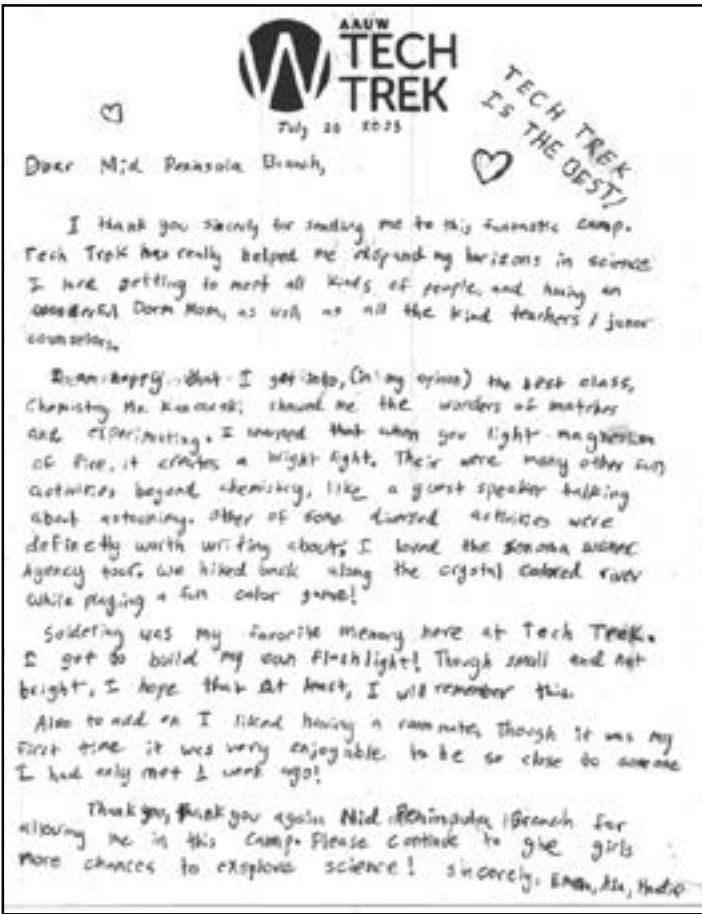 AAUW
TECH
TREK
July 20 2023
TECH TREK
IS THE BEST!
Dear Mid Peninsula Branch,
I thank you sincerly for sending me to this funtastic camp.
Tech Trek has really helped me expand my horizons in science
I love getting to meet all kinds of people, and having an
wonderful Dorm Mom, as well as all the kind teachers / junor
counselors.
I am happy that I got into, (in my opinion) the best class,
Chemistry Mr. showed me the wonders of matches
and experimenting. I learned that when you light magnesium
of fire, it creates a bright light. Their were many other fun
activities beyond chemistry, like a guest speaker talking
about astronimy. Other of some activities were
definetly worth writing about. I loved the Sonoma Water
Agency tour. We hiked back along the crystal colored river
while playing a fun color game!
Soldering was my favorite memory here at Tech Trek.
I got to build my own flashlight! Though small and not
bright, I hope that at least, I will remember this.
Also to add on I liked having a roommate, Though it was my
first time it was very enjoyable to be so close to someone
I had only met 1 week ago!
Thank you, thank you again Mid Branch for
allowing me in this camp. Please continue to give girls
more chances to exsplore science! Sincerely,